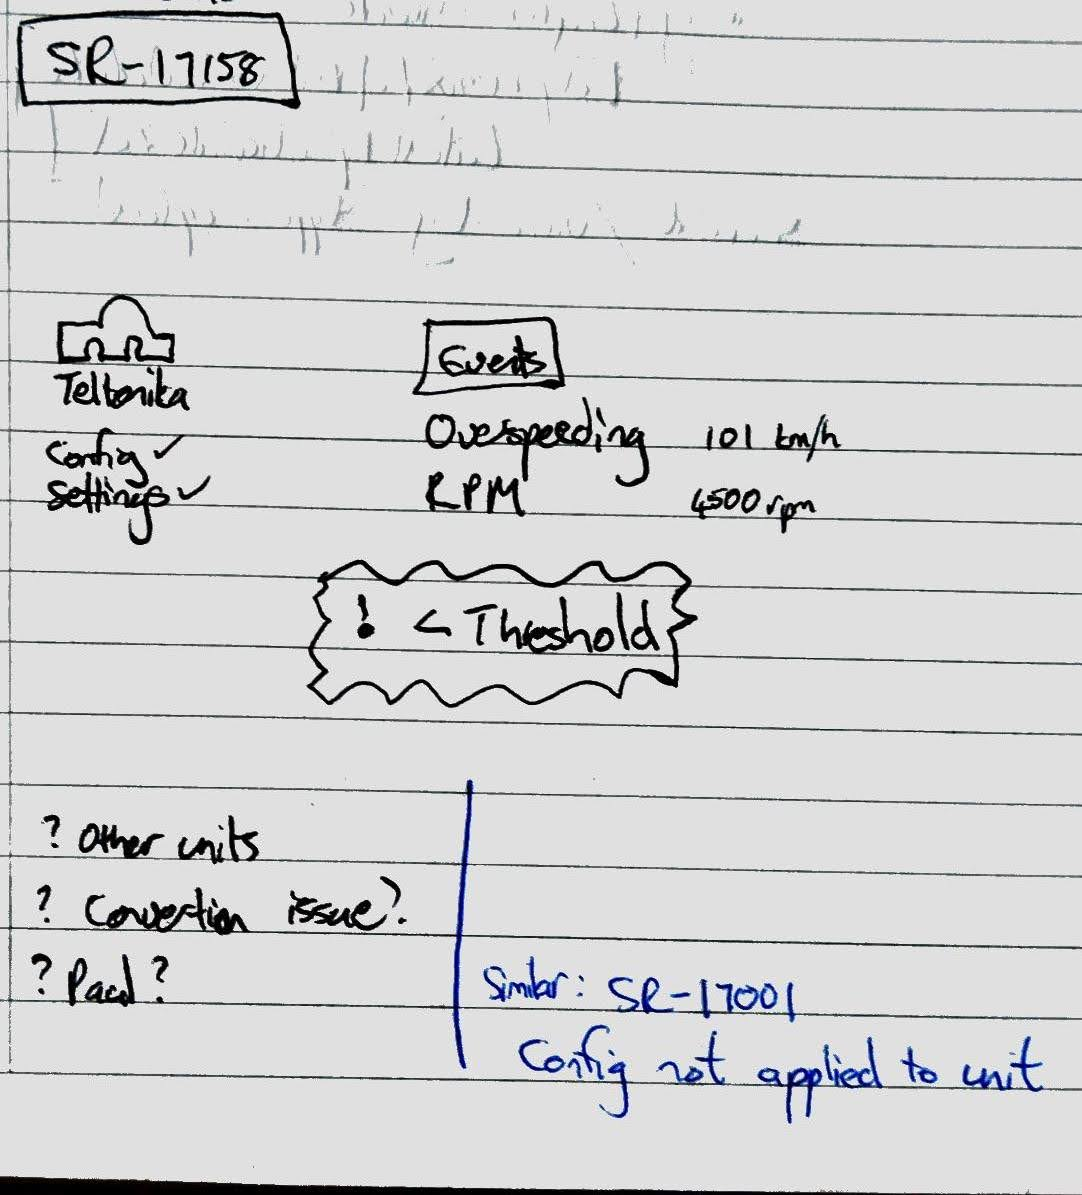 SR-17158
Teltonika
Config ✓
Settings ✓
Events
Overspeeding 101 km/h
RPM 4500 rpm
! < Threshold
? Other units
? Convertion issue?
? Pacd ?
Similar: SR-17001
Config not applied to unit